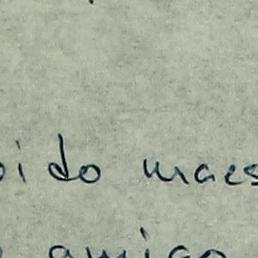 ido maes
amigo